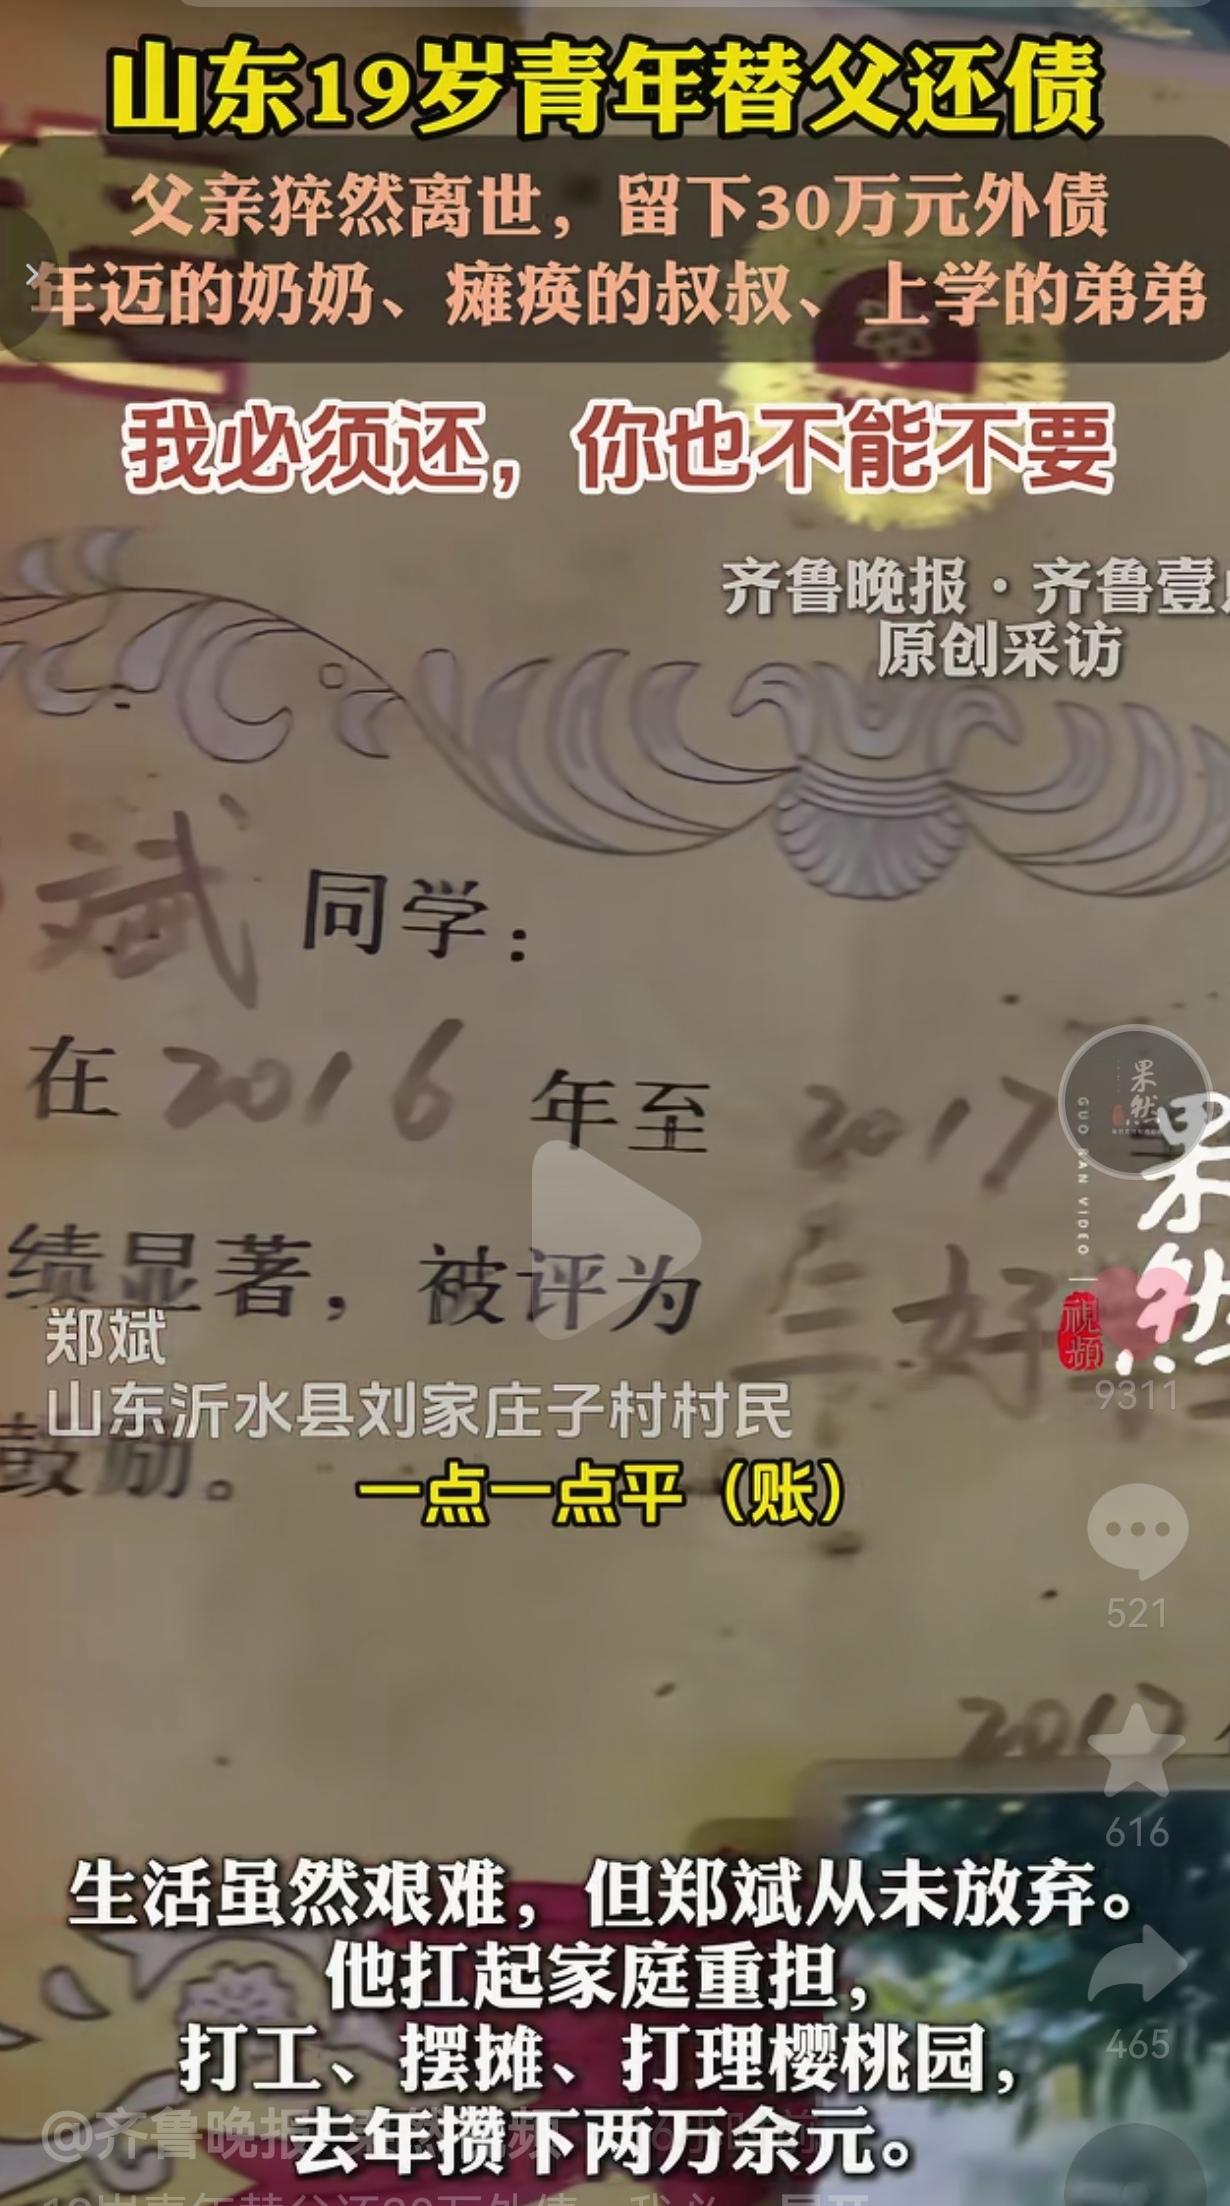 山东19岁青年替父还债
父亲猝然离世，留下30万元外债
年迈的奶奶、瘫痪的叔叔、上学的弟弟
我必须还，你也不能不要
齐鲁晚报·齐鲁壹
原创采访
斌 同学：
在 2016 年至 2017
绩显著，被评为 三好
鼓励。
果然
GUO RAN VIDEO
视频
郑斌
山东沂水县刘家庄子村村民
一点一点平（账）
9311
521
2017
616
465
生活虽然艰难，但郑斌从未放弃。
他扛起家庭重担，
打工、摆摊、打理樱桃园，
去年攒下两万余元。
@齐鲁晚报